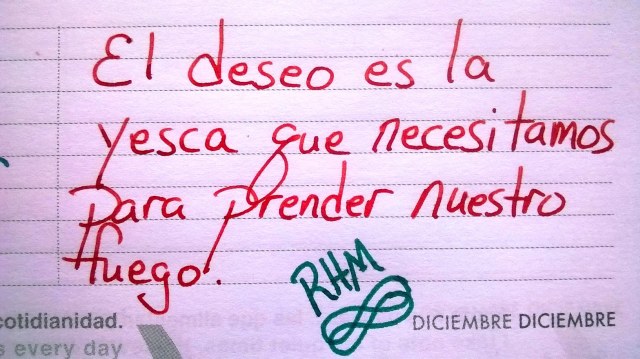 El deseo es la
yesca que necesitamos
para prender nuestro
fuego.
RHM
cotidianidad.
s every day
DICIEMBRE DICIEMBRE